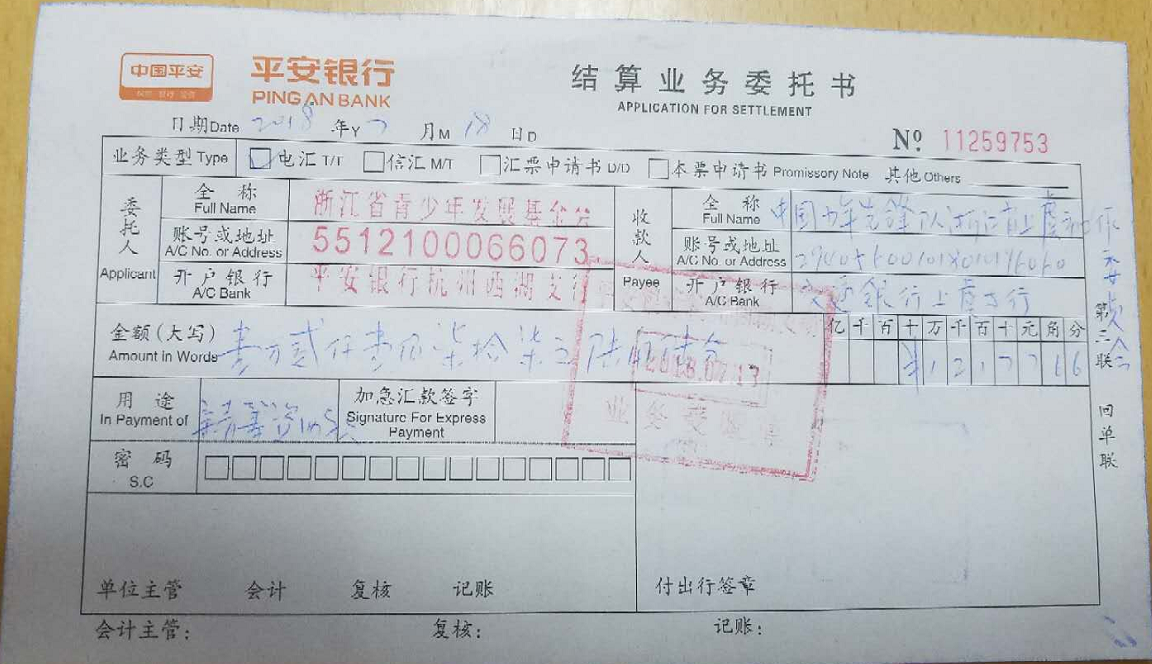 中国平安
平安银行
PING AN BANK
结算业务委托书
APPLICATION FOR SETTLEMENT
日期Date 2018 年Y 7 月M 18 日D
№ 11259753
业务类型 Type 电汇 T/T 信汇 M/T 汇票申请书 D/D 本票申请书 Promissory Note 其他 Others
委托人 Applicant
全称 Full Name 浙江省青少年发展基金会
账号或地址 A/C No. or Address 5512100066073
开户银行 A/C Bank 平安银行杭州西湖支行
收款人 Payee
全称 Full Name 中国少年先锋队浙江省上虞
账号或地址 A/C No. or Address
开户银行 A/C Bank 交通银行上虞支行
金额(大写) Amount in Words 壹万贰仟壹佰柒拾柒元陆角陆分
亿千百十万千百十元角分
¥1217766
用途 In Payment of
加急汇款签字 Signature For Express Payment
2018.07.
业务受理章
密码 S.C
第二联 回单联
单位主管 会计 复核 记账
付出行签章
会计主管: 复核: 记账: